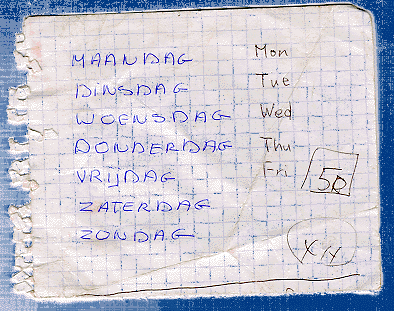 MAANDAG Mon
DINSDAG Tue
WOENSDAG Wed
DONDERDAG Thu
VRIJDAG Fri
ZATERDAG
ZONDAG